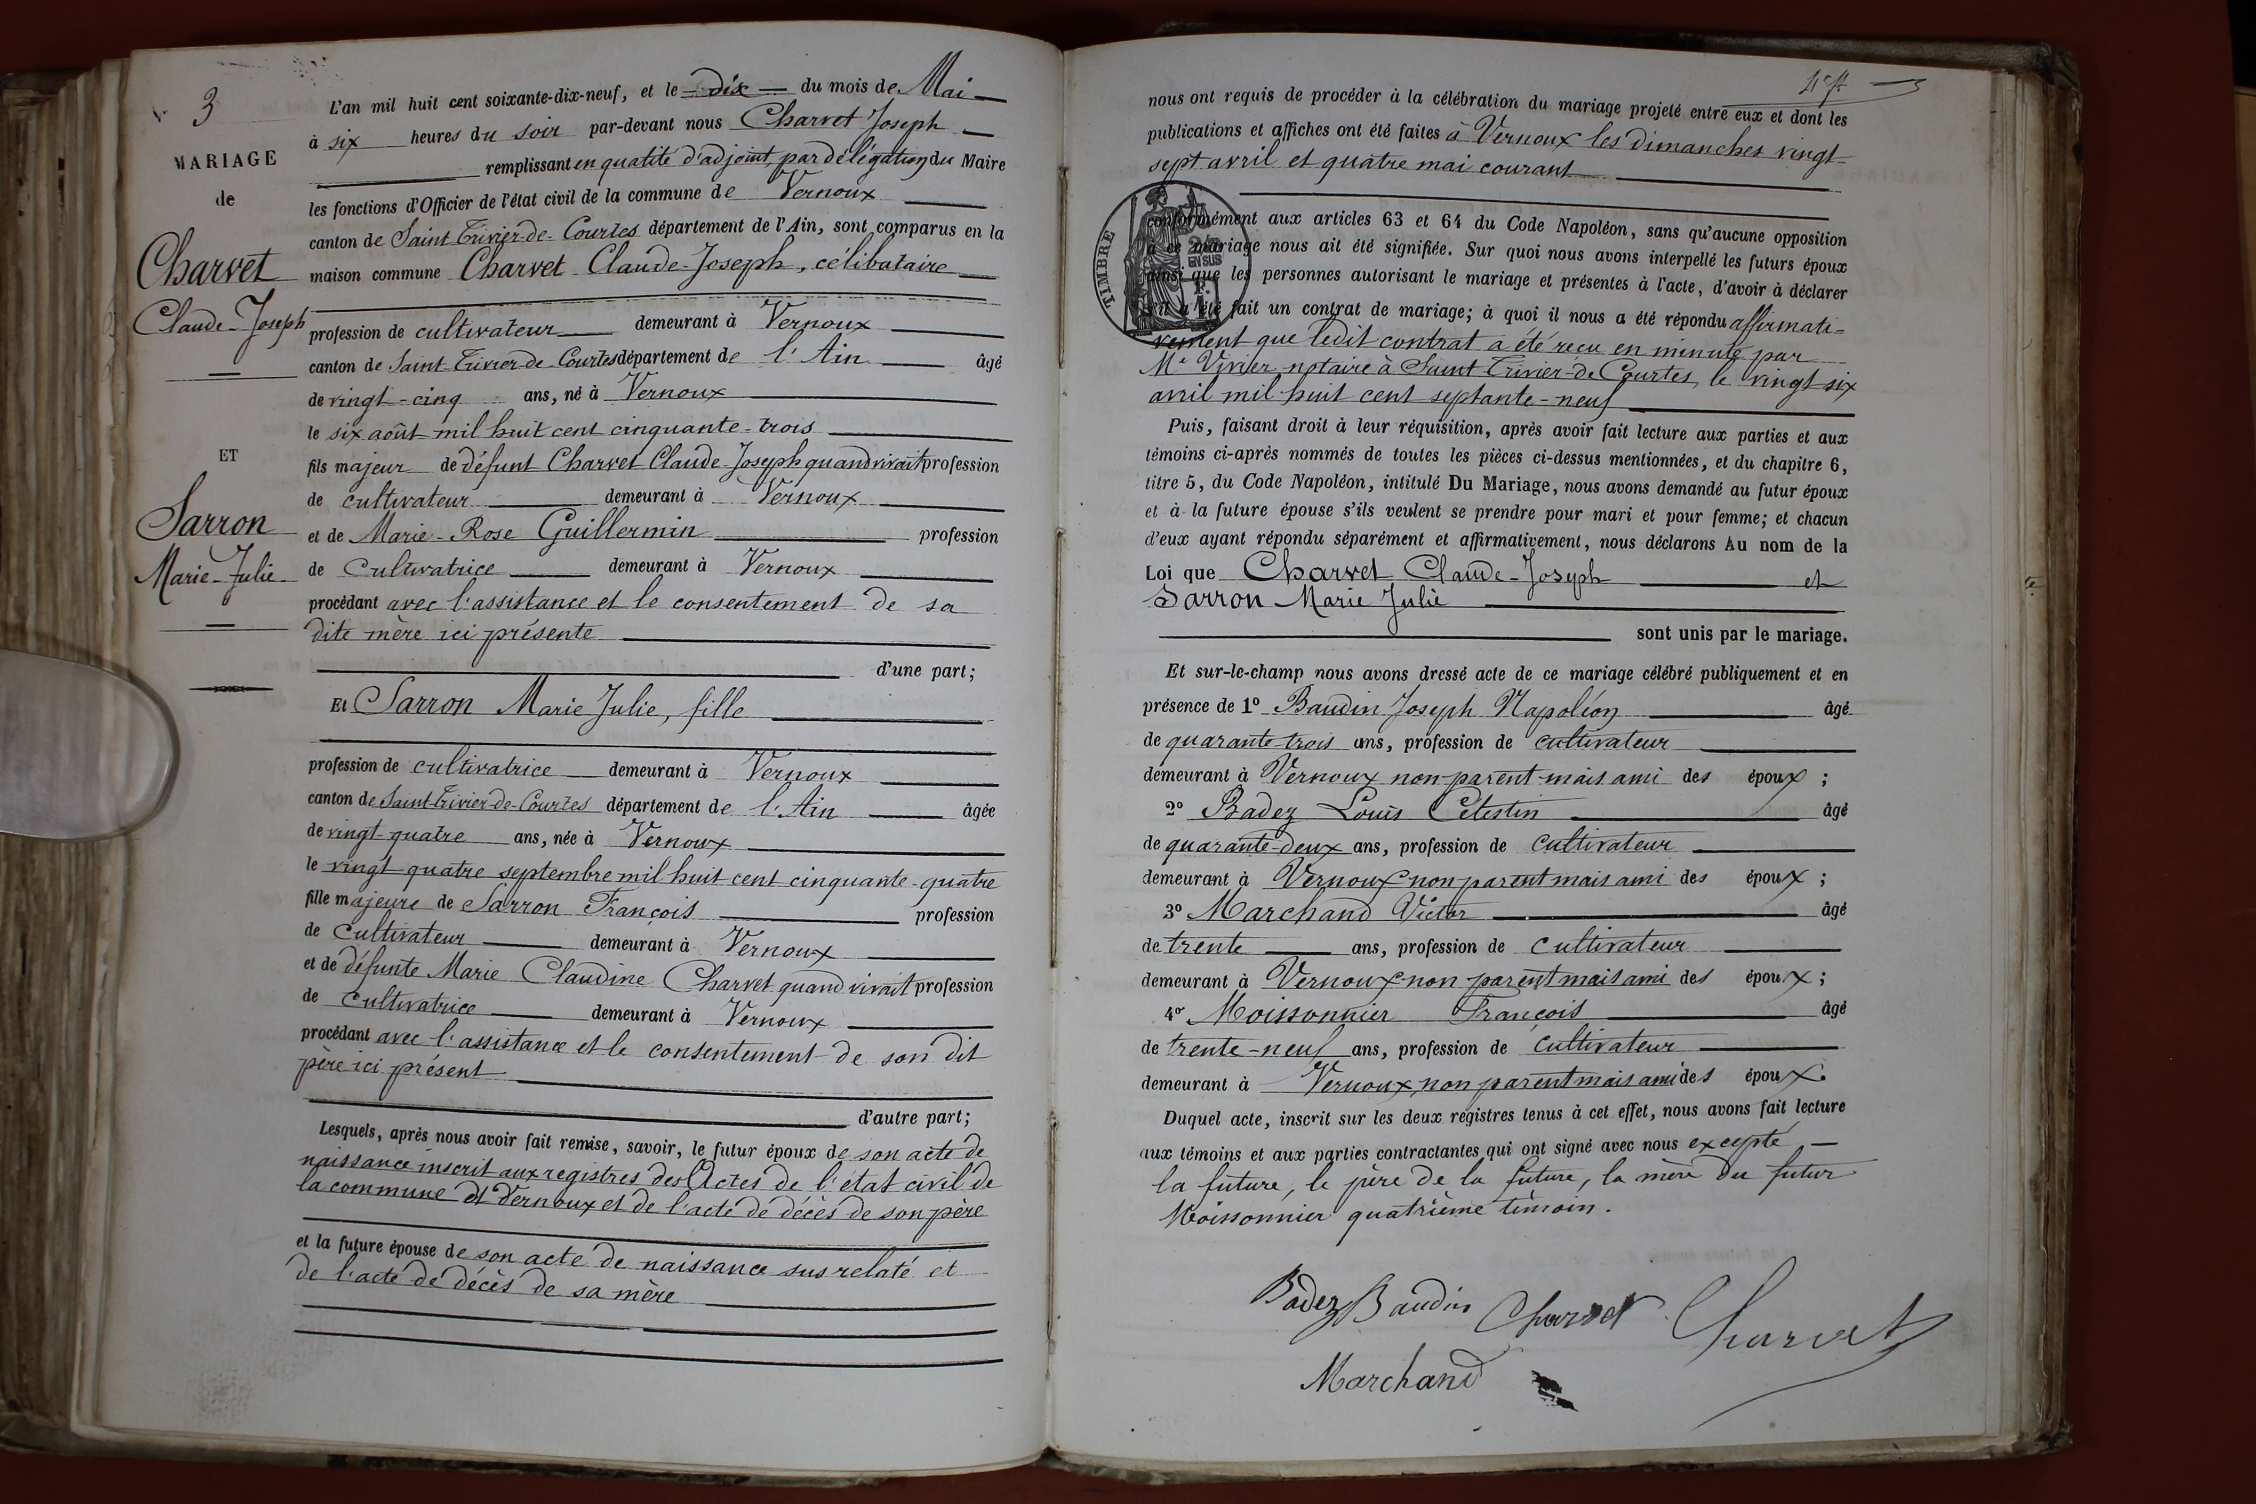 3
MARIAGE
de
Charvet
Claude-Joseph
ET
Sarron
Marie-Julie
L'an mil huit cent soixante-dix-neuf, et le dix du mois de Mai
à six heures du soir par-devant nous Charvet Joseph
remplissant en qualité d'adjoint, par délégation du Maire
les fonctions d'Officier de l'état civil de la commune de Vernoux
canton de Saint-Trivier-de-Courtes département de l'Ain, sont comparus en la
maison commune Charvet Claude-Joseph, célibataire
profession de cultivateur demeurant à Vernoux
canton de Saint-Trivier-de-Courtes département de l'Ain âgé
de vingt-cinq ans, né à Vernoux
le six août mil huit cent cinquante-trois
fils majeur de défunt Charvet Claude-Joseph quand vivait profession
de cultivateur demeurant à Vernoux
et de Marie-Rose Guillermin profession
de cultivatrice demeurant à Vernoux
procédant avec l'assistance et le consentement de sa
dite mère ici présente
d'une part;
Et Sarron Marie Julie, fille
profession de cultivatrice demeurant à Vernoux
canton de Saint-Trivier-de-Courtes département de l'Ain âgée
de vingt-quatre ans, née à Vernoux
le vingt quatre septembre mil huit cent cinquante-quatre
fille majeure de Sarron François profession
de cultivateur demeurant à Vernoux
et de défunte Marie Claudine Charvet quand vivait profession
de cultivatrice demeurant à Vernoux
procédant avec l'assistance et le consentement de son dit
père ici présent
d'autre part;
Lesquels, après nous avoir fait remise, savoir, le futur époux de son acte de
naissance inscrit aux registres des Actes de l'état civil de
la commune de Vernoux et de l'acte de décès de son père
et la future épouse de son acte de naissance sus relaté et
de l'acte de décès de sa mère
nous ont requis de procéder à la célébration du mariage projeté entre eux et dont les
publications et affiches ont été faites à Vernoux les dimanches vingt-
sept avril et quatre mai courant
TIMBRE
EN SUS
conformément aux articles 63 et 64 du Code Napoléon, sans qu'aucune opposition
à ce mariage nous ait été signifiée. Sur quoi nous avons interpellé les futurs époux
ainsi que les personnes autorisant le mariage et présentes à l'acte, d'avoir à déclarer
s'il a été fait un contrat de mariage; à quoi il nous a été répondu affirmati-
vement que ledit contrat a été reçu en minute par
Me Vivier notaire à Saint Trivier-de Courtes, le vingt-six
avril mil huit cent septante-neuf
Puis, faisant droit à leur réquisition, après avoir fait lecture aux parties et aux
témoins ci-après nommés de toutes les pièces ci-dessus mentionnées, et du chapitre 6,
titre 5, du Code Napoléon, intitulé Du Mariage, nous avons demandé au futur époux
et à la future épouse s'ils veulent se prendre pour mari et pour femme; et chacun
d'eux ayant répondu séparément et affirmativement, nous déclarons Au nom de la
Loi que Charvet Claude-Joseph et
Sarron Marie Julie
sont unis par le mariage.
Et sur-le-champ nous avons dressé acte de ce mariage célébré publiquement et en
présence de 1º Baudin Joseph Napoléon âgé
de quarante-trois ans, profession de cultivateur
demeurant à Vernoux non parent mais ami des époux;
2º Badez Louis Célestin âgé
de quarante-deux ans, profession de cultivateur
demeurant à Vernoux non parent mais ami des époux;
3º Marchand Victor âgé
de trente ans, profession de cultivateur
demeurant à Vernoux non parent mais ami des époux;
4º Moissonnier François âgé
de trente-neuf ans, profession de cultivateur
demeurant à Vernoux, non parent mais ami des époux.
Duquel acte, inscrit sur les deux registres tenus à cet effet, nous avons fait lecture
aux témoins et aux parties contractantes qui ont signé avec nous excepté
la future, le père de la future, la mère du futur
Moissonnier quatrième témoin.
Badez Baudin Charvet Charvet
Marchand